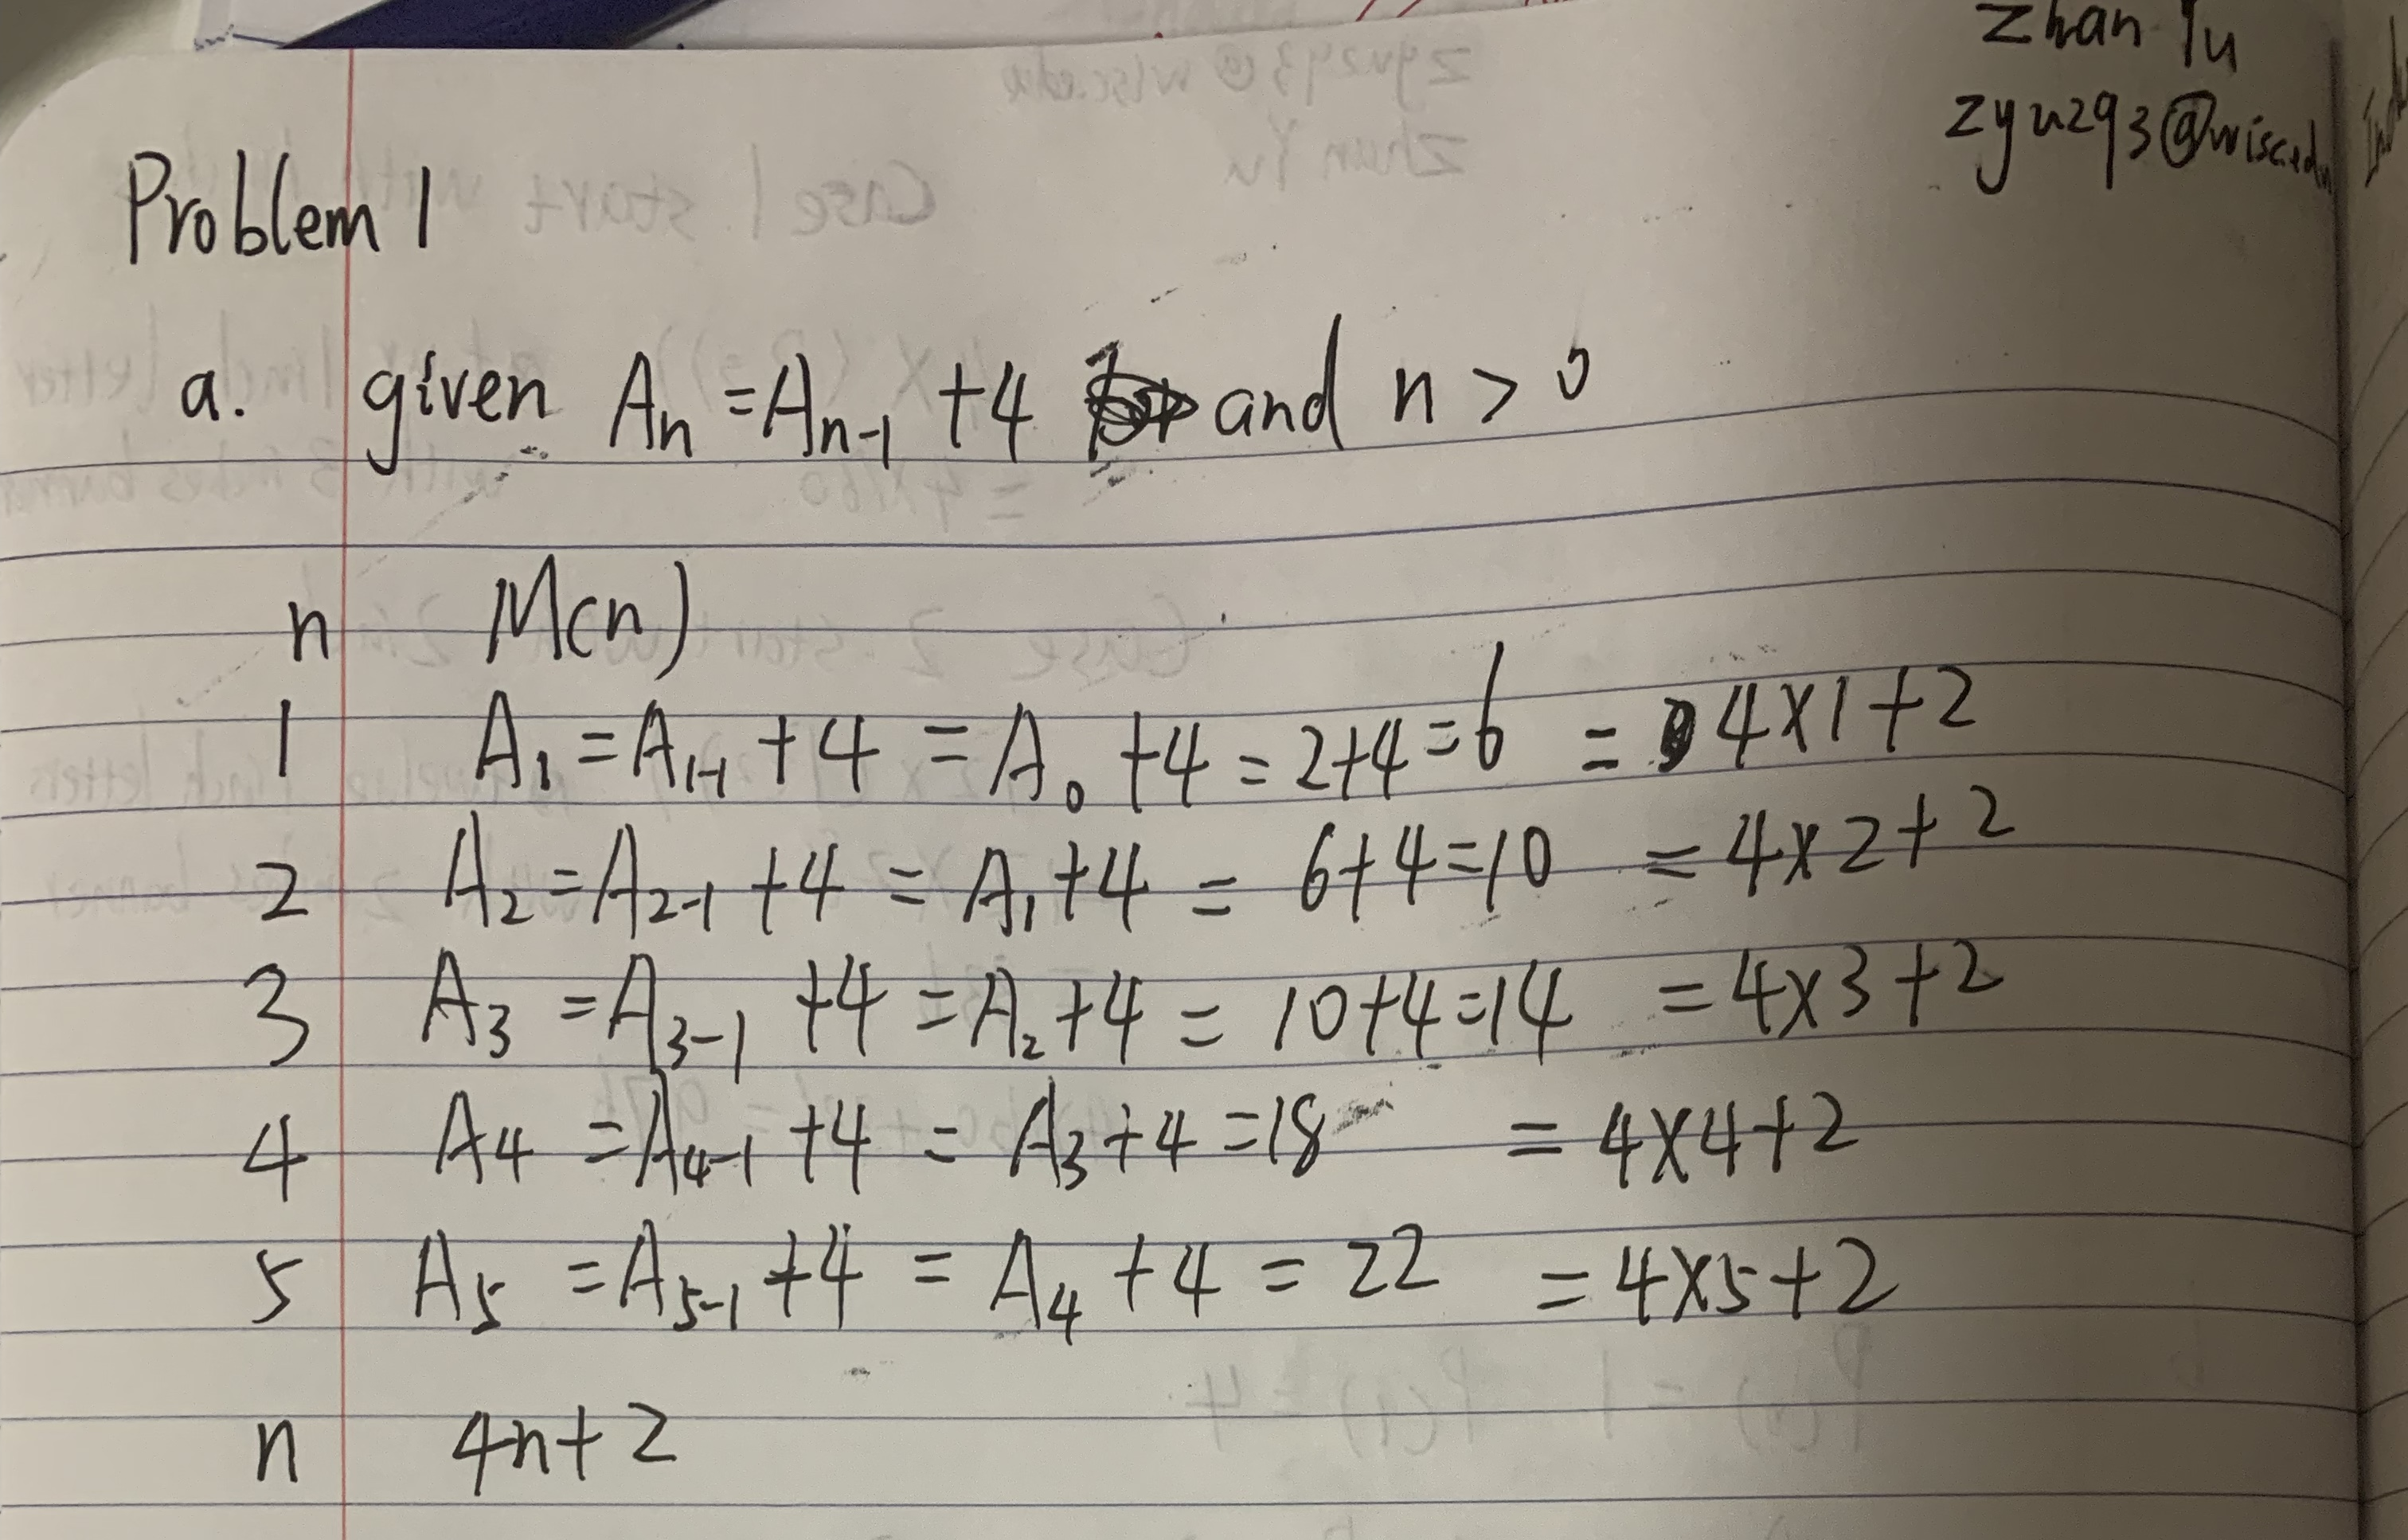 Zhan Yu
zyu293@wisc.edu
Problem 1
a. given Aₙ = Aₙ₋₁ + 4 and n > 0
n M(n)
1 A₁ = A₁₋₁ + 4 = A₀ + 4 = 2+4 = 6 = 4×1+2
2 A₂ = A₂₋₁ + 4 = A₁ + 4 = 6+4 = 10 = 4×2+2
3 A₃ = A₃₋₁ + 4 = A₂ + 4 = 10+4 = 14 = 4×3+2
4 A₄ = A₄₋₁ + 4 = A₃ + 4 = 18 = 4×4+2
5 A₅ = A₅₋₁ + 4 = A₄ + 4 = 22 = 4×5+2
n 4n+2